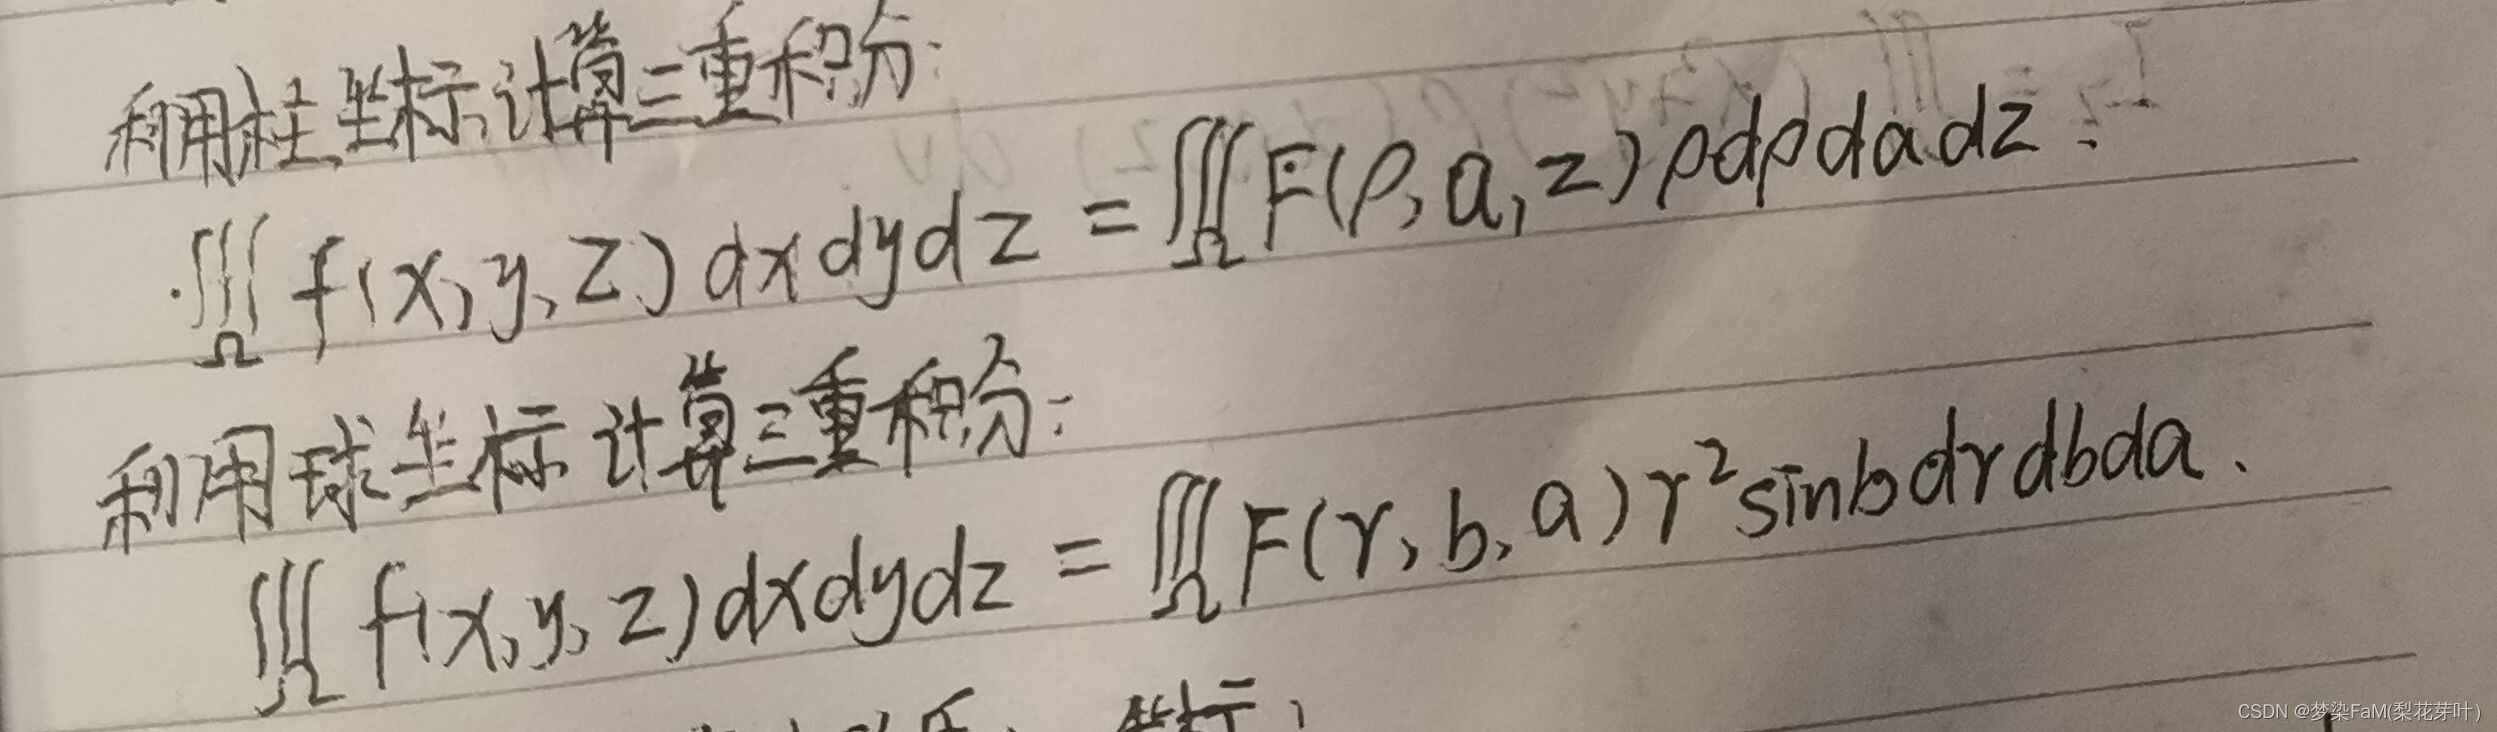 利用柱坐标计算三重积分:
∭Ω f(x,y,z)dxdydz = ∭Ω F(ρ,a,z)ρdρdadz.
利用球坐标计算三重积分:
∭Ω f(x,y,z)dxdydz = ∭Ω F(r,b,a)r²sinbdrdbda.
坐标,
CSDN @梦染FaM(梨花芽叶)